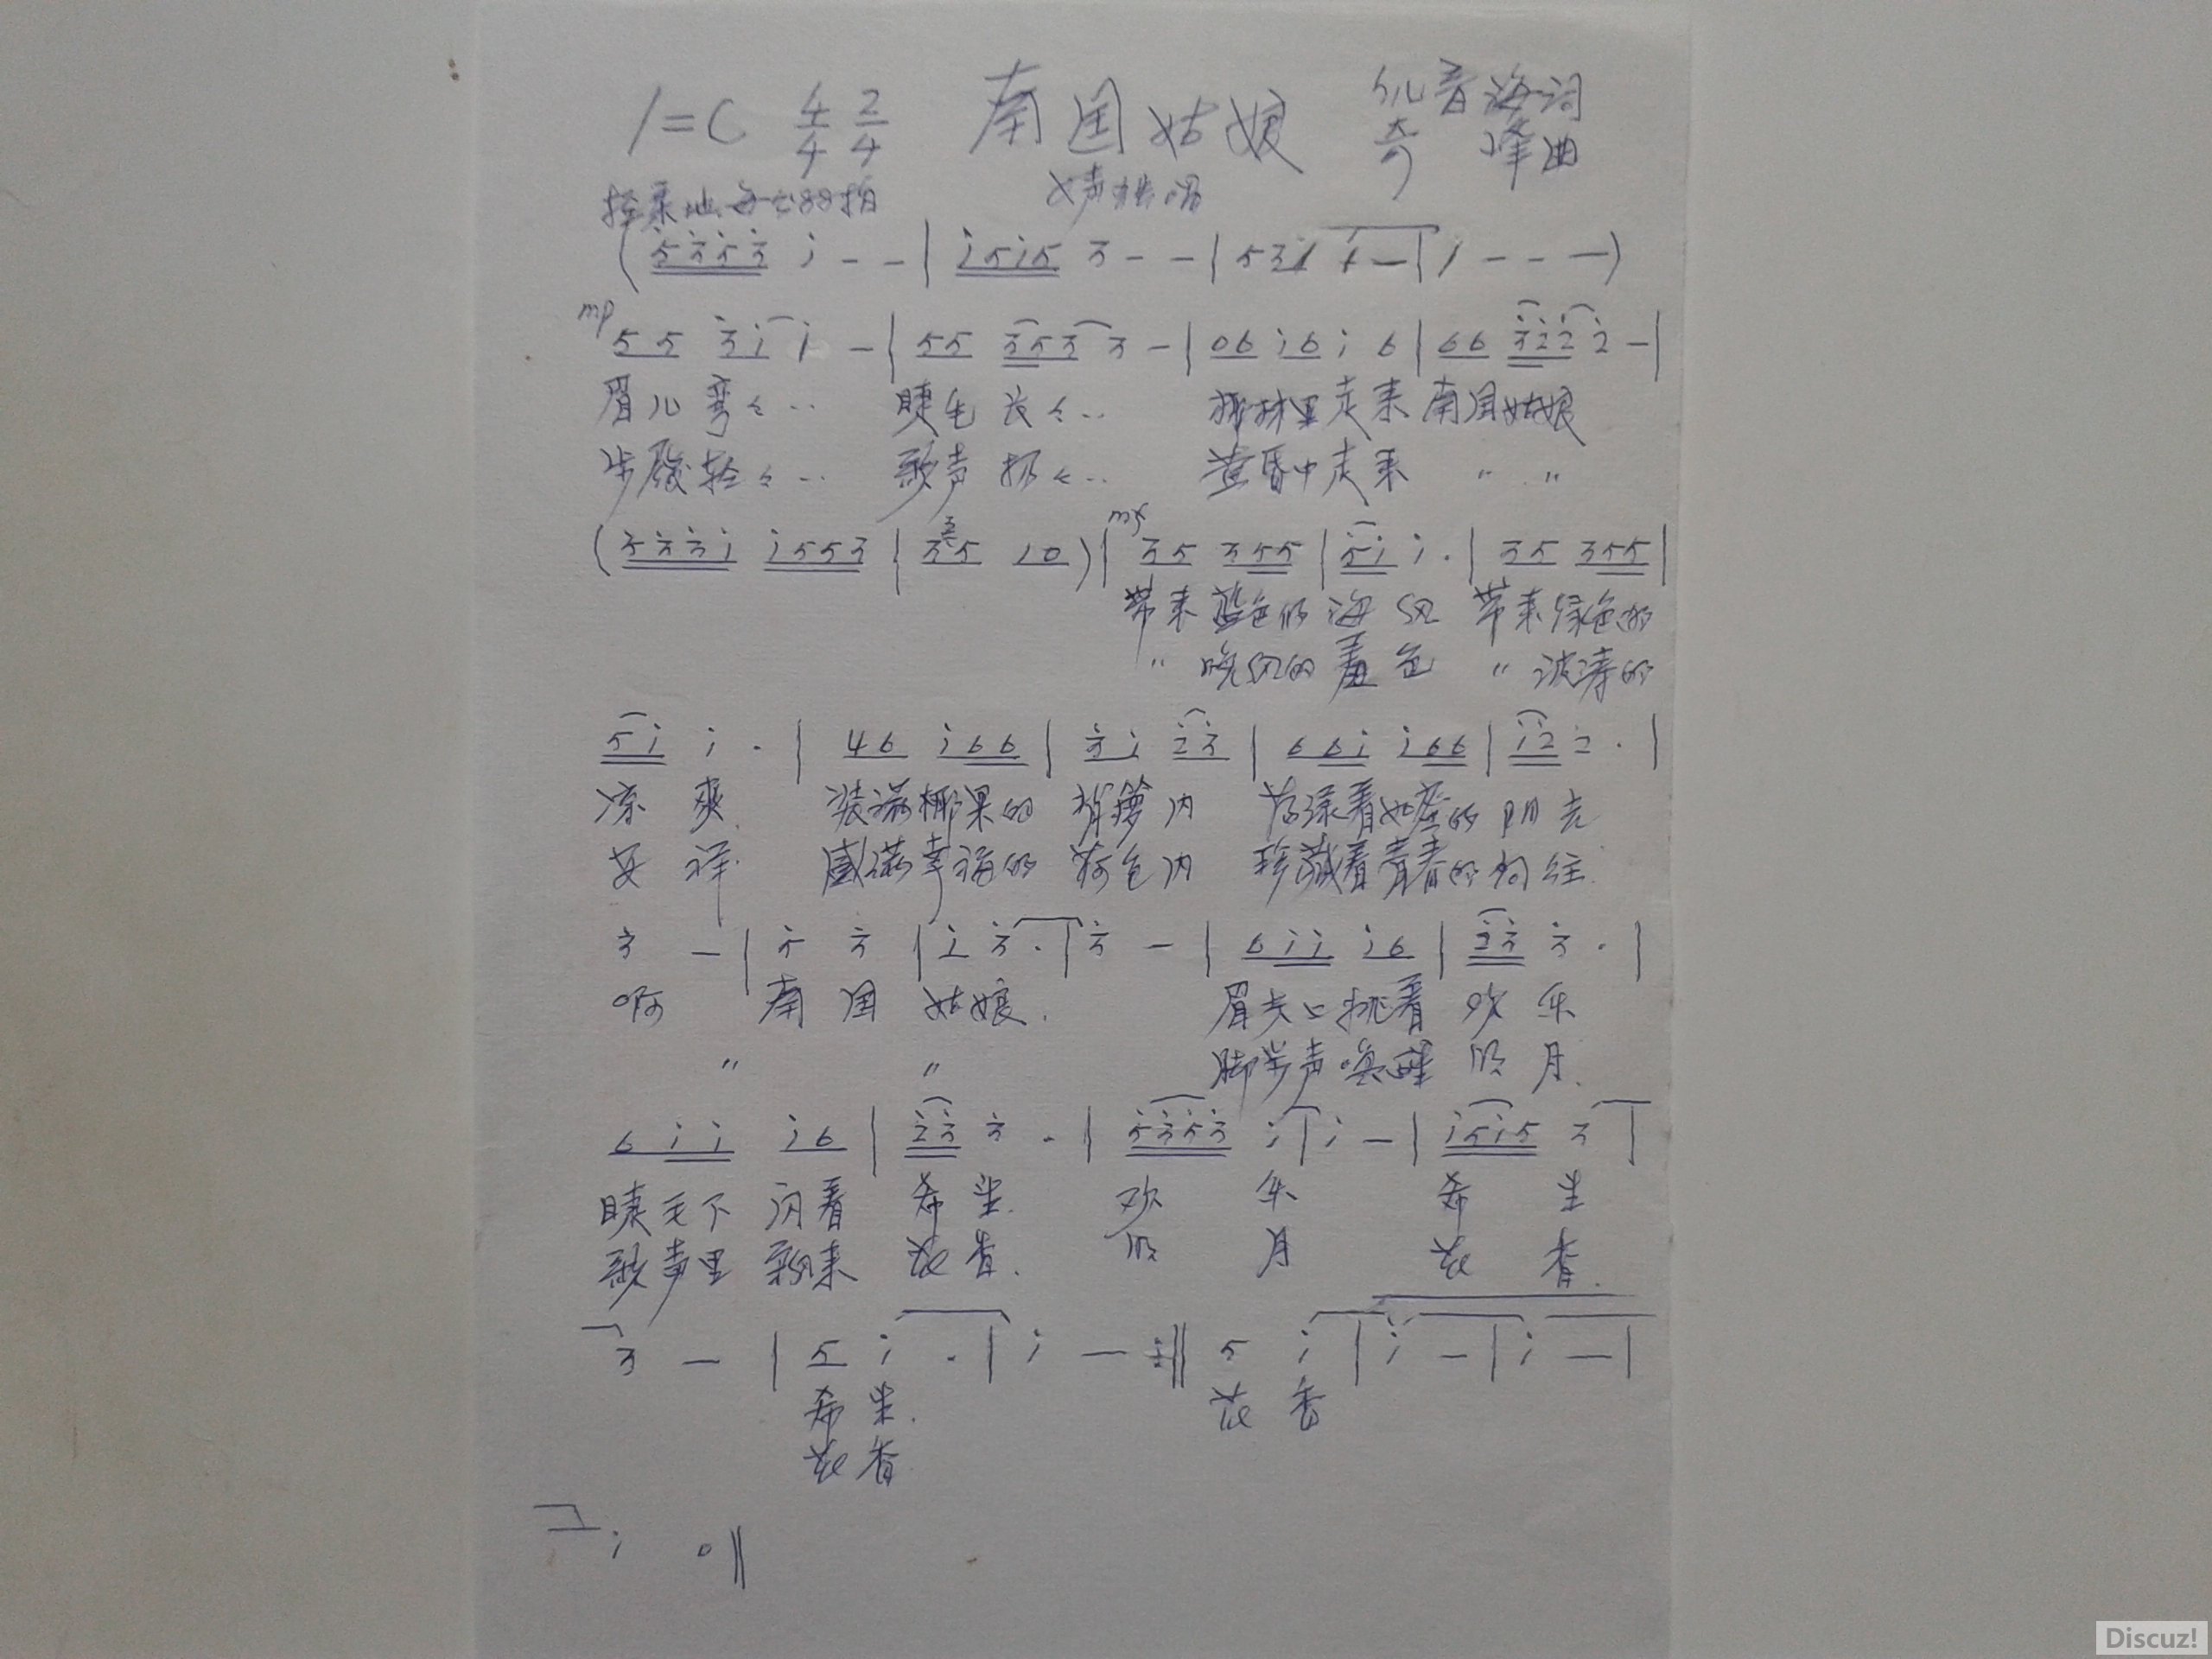 1=C 4/4 2/4 南国姑娘 音海词
奇峰曲
轻柔地 每分88拍 女声独唱
(5353 i - - | i5i5 3 - - | 531 1 - | 1 - - -)
mp 55 3i i - | 55 353 3 - | 06 i6 i 6 | 66 3222 2 - |
眉儿弯々‥ 睫毛长々‥ 椰林里走来南国姑娘
步履轻々‥ 歌声扬々‥ 黄昏中走来 〃 〃
(333i i553 | 35 10) | mf 35 355 | 5i i . | 35 355 |
带来蓝色的海风 带来绿色的
〃 晚风的羞色 〃 波涛的
5i i . | 46 i66 | 3i 23 | 66i i66 | i2 2 . |
凉爽 装满椰果的背箩内 荡漾着如蜜的阳光
安详 盛满幸福的荷包内 珍藏着青春的向往.
3 - | 5 3 | 2 3 . | 3 - | 6ii i6 | 23 3 . |
啊 南国姑娘. 眉尖上挑着欢乐
〃 〃 脚步声唤醒明月.
6ii i6 | 23 3 . | 5353 i | i - | i5i5 3 |
睫毛下闪着希望. 欢乐 希望
歌声里飘来花香. 明月 花香.
3 - | 5 i . | i - :‖ 5 i | i - | i - |
希望. 花香
花香
i 0 ‖
Discuz!